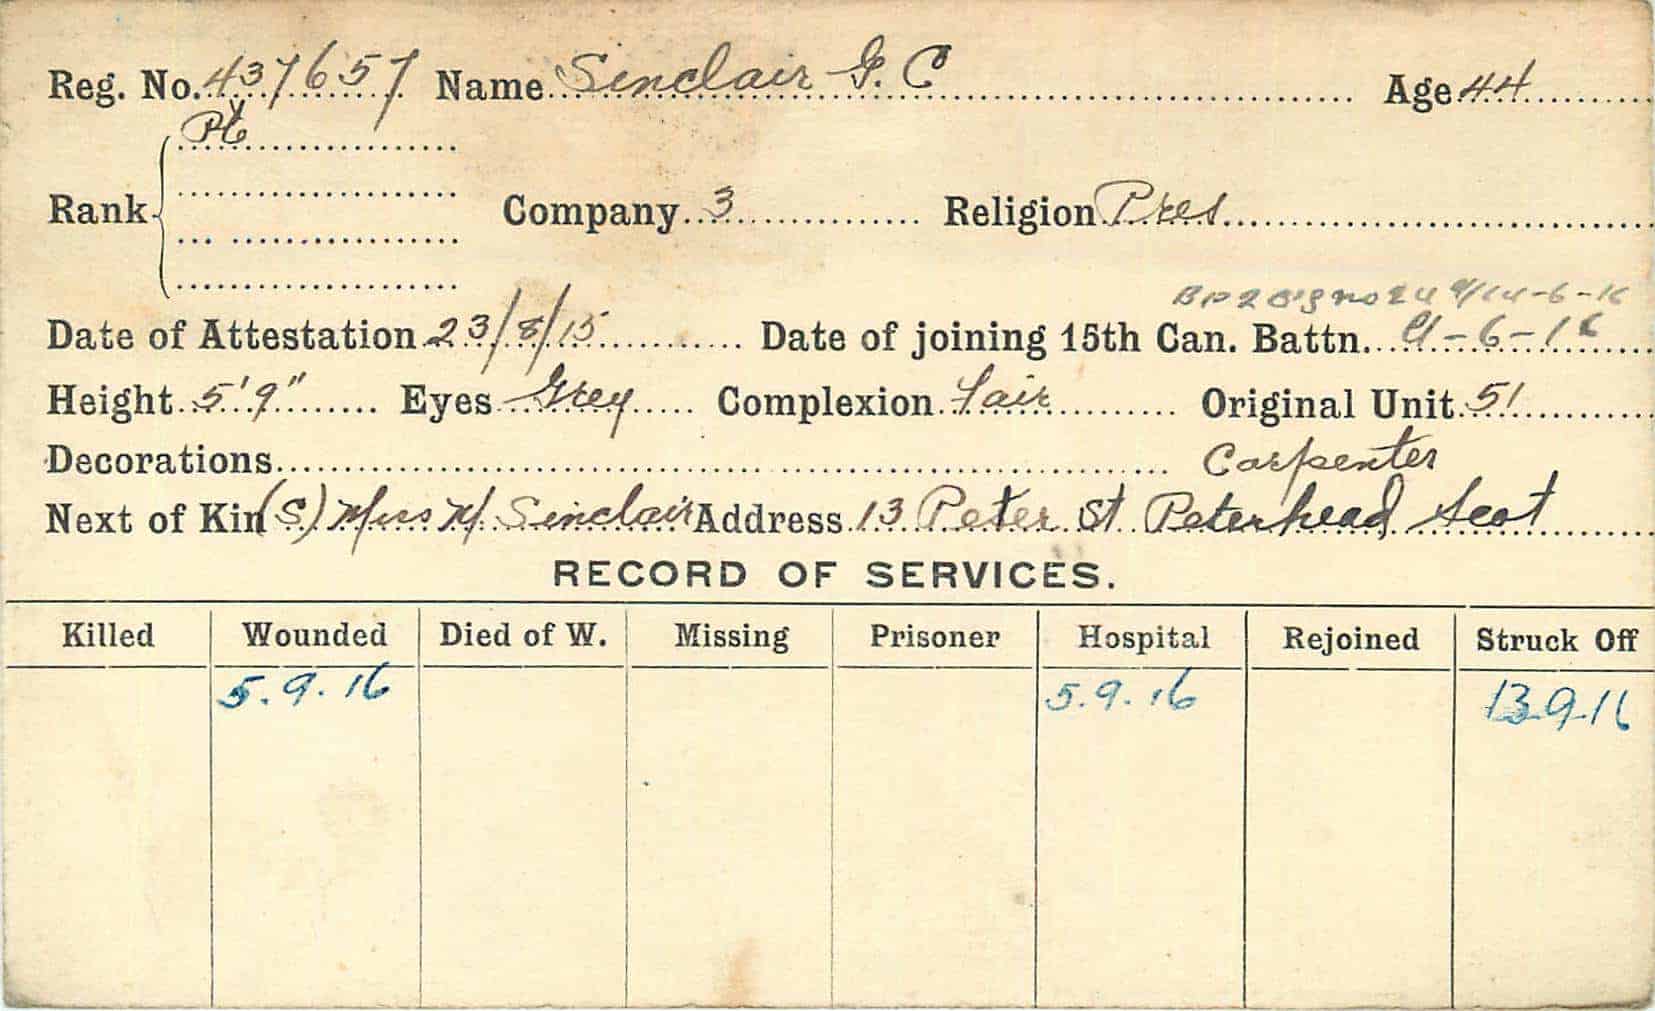 Reg. No. 437657 Name Sinclair G. C Age 44
Pte
Rank Company 3 Religion Pres
14-6-16
Date of Attestation 23/8/15 Date of joining 15th Can. Battn. -6-16
Height 5'9" Eyes Grey Complexion Fair Original Unit 51
Decorations Carpenter
Next of Kin (S) Miss M. Sinclair Address 13 Peter St Peterhead, Scot
RECORD OF SERVICES.
Killed Wounded Died of W. Missing Prisoner Hospital Rejoined Struck Off
5.9.16 5.9.16 13-9-16